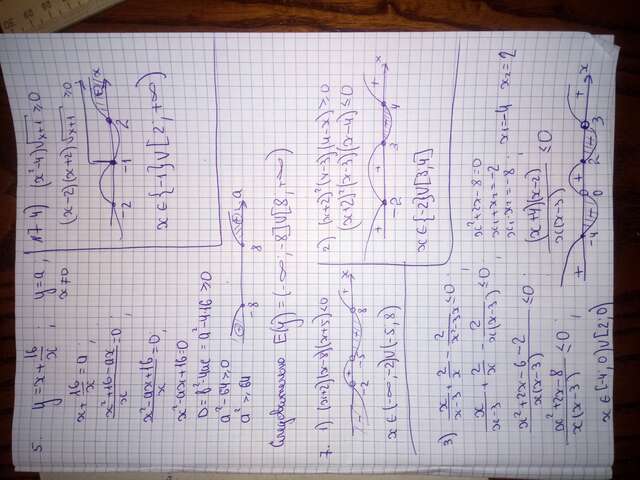 5. y = x + 16/x ; y = a,
x ≠ 0
x + 16/x = a;
(x² + 16 - ax)/x = 0;
(x² - ax + 16)/x = 0;
x² - ax + 16 = 0
D = b² - 4ac = a² - 4·16 ≥ 0
a² - 64 ≥ 0
a² ≥ 64
-8 8 a
Следовательно E(y) = (-∞; -8] ∪ [8, +∞)
№7 4) (x² - 4)√(x+1) ≥ 0
(x - 2)(x + 2)√(x+1) ≥ 0
-2 -1 2 x
x ∈ {-1} ∪ [2, +∞)
7. 1) (x+2)(x-8)(x+5) < 0
- -2 + -5 - 8 + x
x ∈ (-∞, -2) ∪ (-5, 8)
2) (x+2)²(x-3)(4-x) ≥ 0
(x+2)²(x-3)(x-4) ≤ 0
+ -2 + 3 - 4 + x
x ∈ {-2} ∪ [3; 4]
3) x/(x-3) + 2/x - 2/(x²-3x) ≤ 0;
x/(x-3) + 2/x - 2/(x(x-3)) ≤ 0;
(x² + 2x - 6 - 2)/(x(x-3)) ≤ 0
(x² + 2x - 8)/(x(x-3)) ≤ 0
x² + 2x - 8 = 0
x₁ + x₂ = -2
x₁ · x₂ = -8; x₁ = -4 x₂ = 2
((x+4)(x-2))/(x(x-3)) ≤ 0
+ -4 - 0 + 2 - 3 + x
x ∈ [-4, 0) ∪ [2; 0)